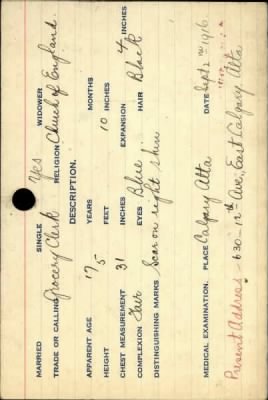 MARRIED SINGLE Yes WIDOWER
TRADE OR CALLING Grocery Clerk RELIGION Church of England.
DESCRIPTION.
APPARENT AGE 17 YEARS MONTHS
HEIGHT 5 FEET 10 INCHES
CHEST MEASUREMENT 31 INCHES EXPANSION 4 INCHES
COMPLEXION Fair EYES Blue HAIR Black
DISTINGUISHING MARKS Scar on right shin
MEDICAL EXAMINATION. PLACE Calgary Alta DATE Sept 2nd 1916.
Present Address - 630 - 12th Ave, East Calgary Alta